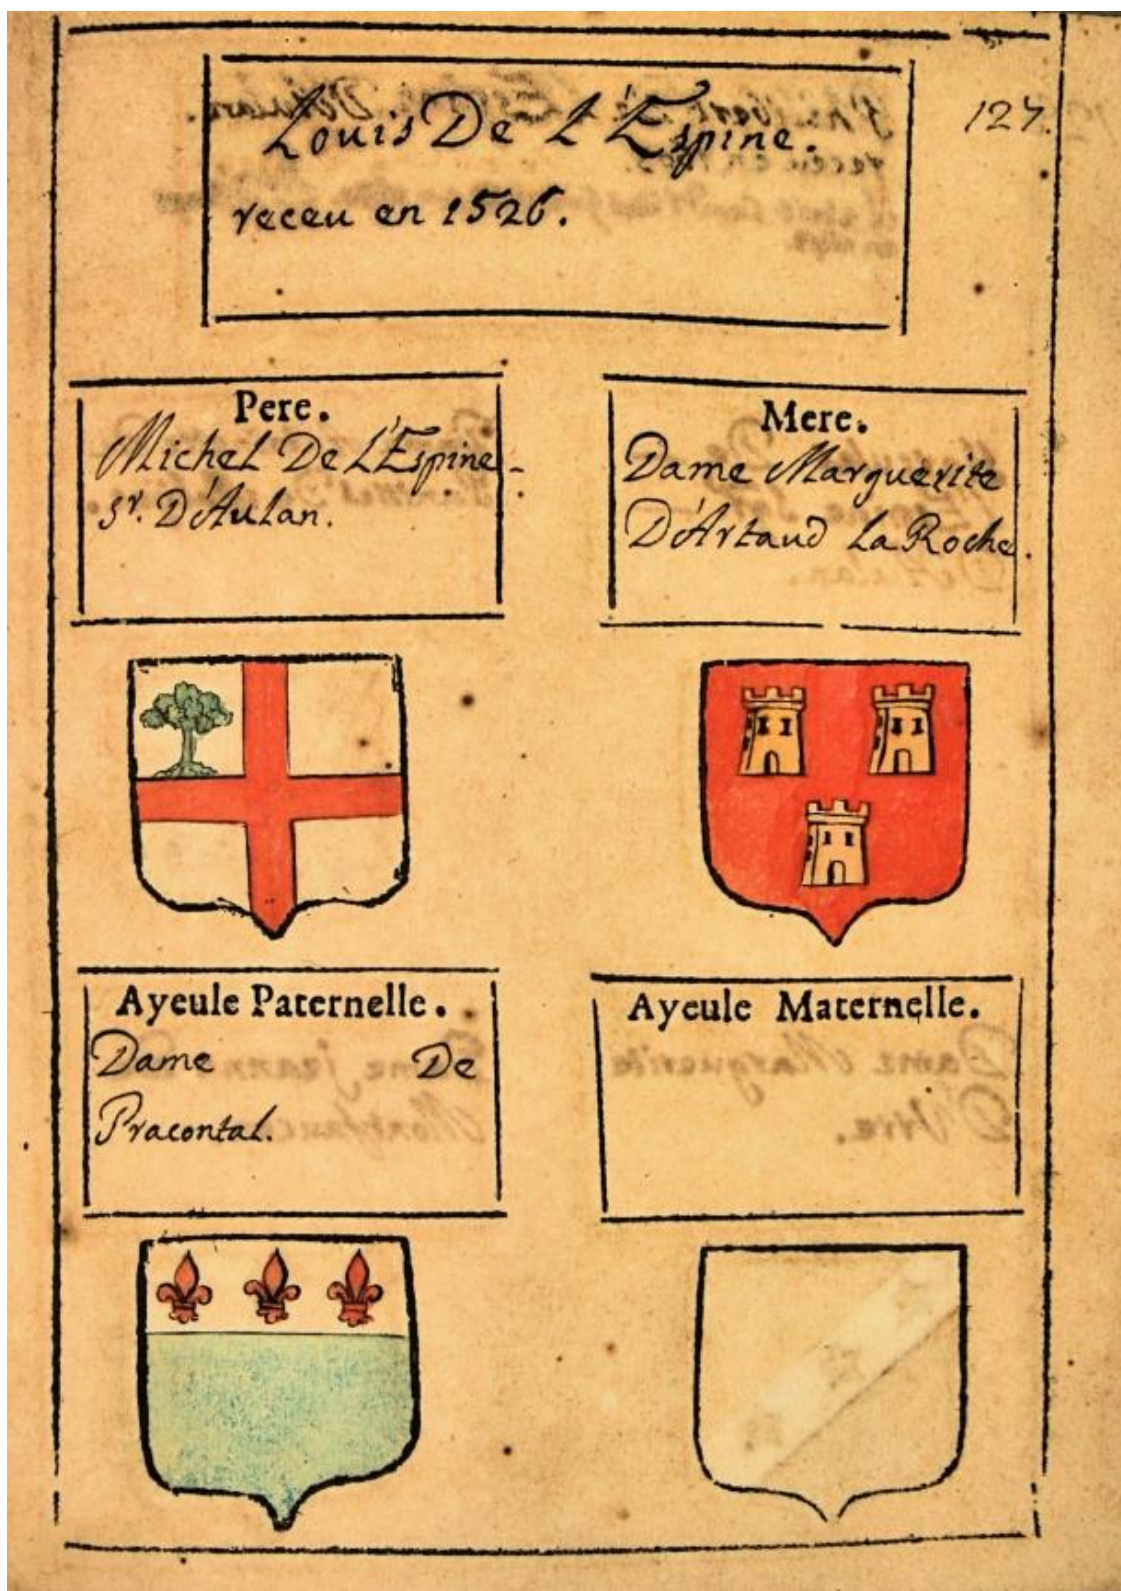 Louis De L'Espine.
receu en 1526.
127.
Pere.
Michel De L'Espine-
sr. D'Aulan.
Mere.
Dame Marguerite
D'Artaud La Roche.
Ayeule Paternelle.
Dame De
Pracontal.
Ayeule Maternelle.